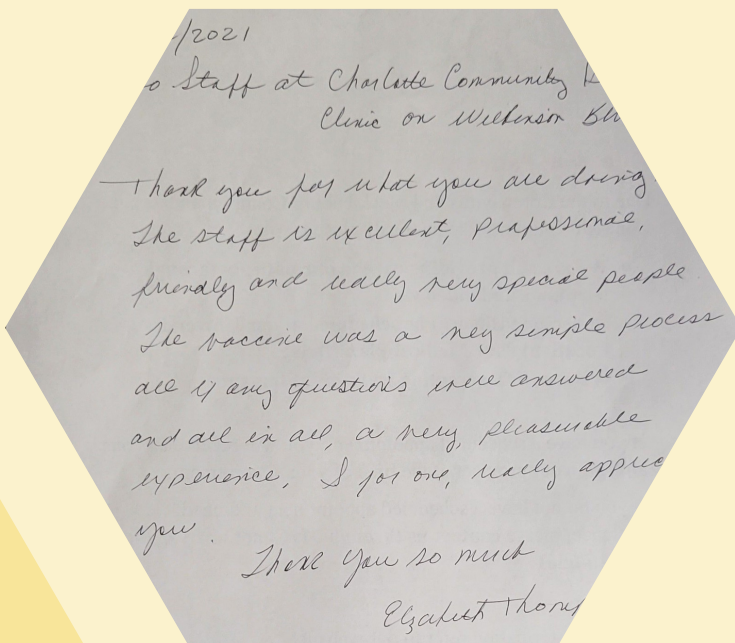 /2021
Staff at Charlotte Community
Clinic on Wilkinson
Thank you for what you are doing.
The staff is excellent, professional,
friendly and really very special people.
The vaccine was a very simple process
all if any questions were answered
and all in all, a very, pleasurable
experience, I for one, really
you.
Thank you so much
Elizabeth